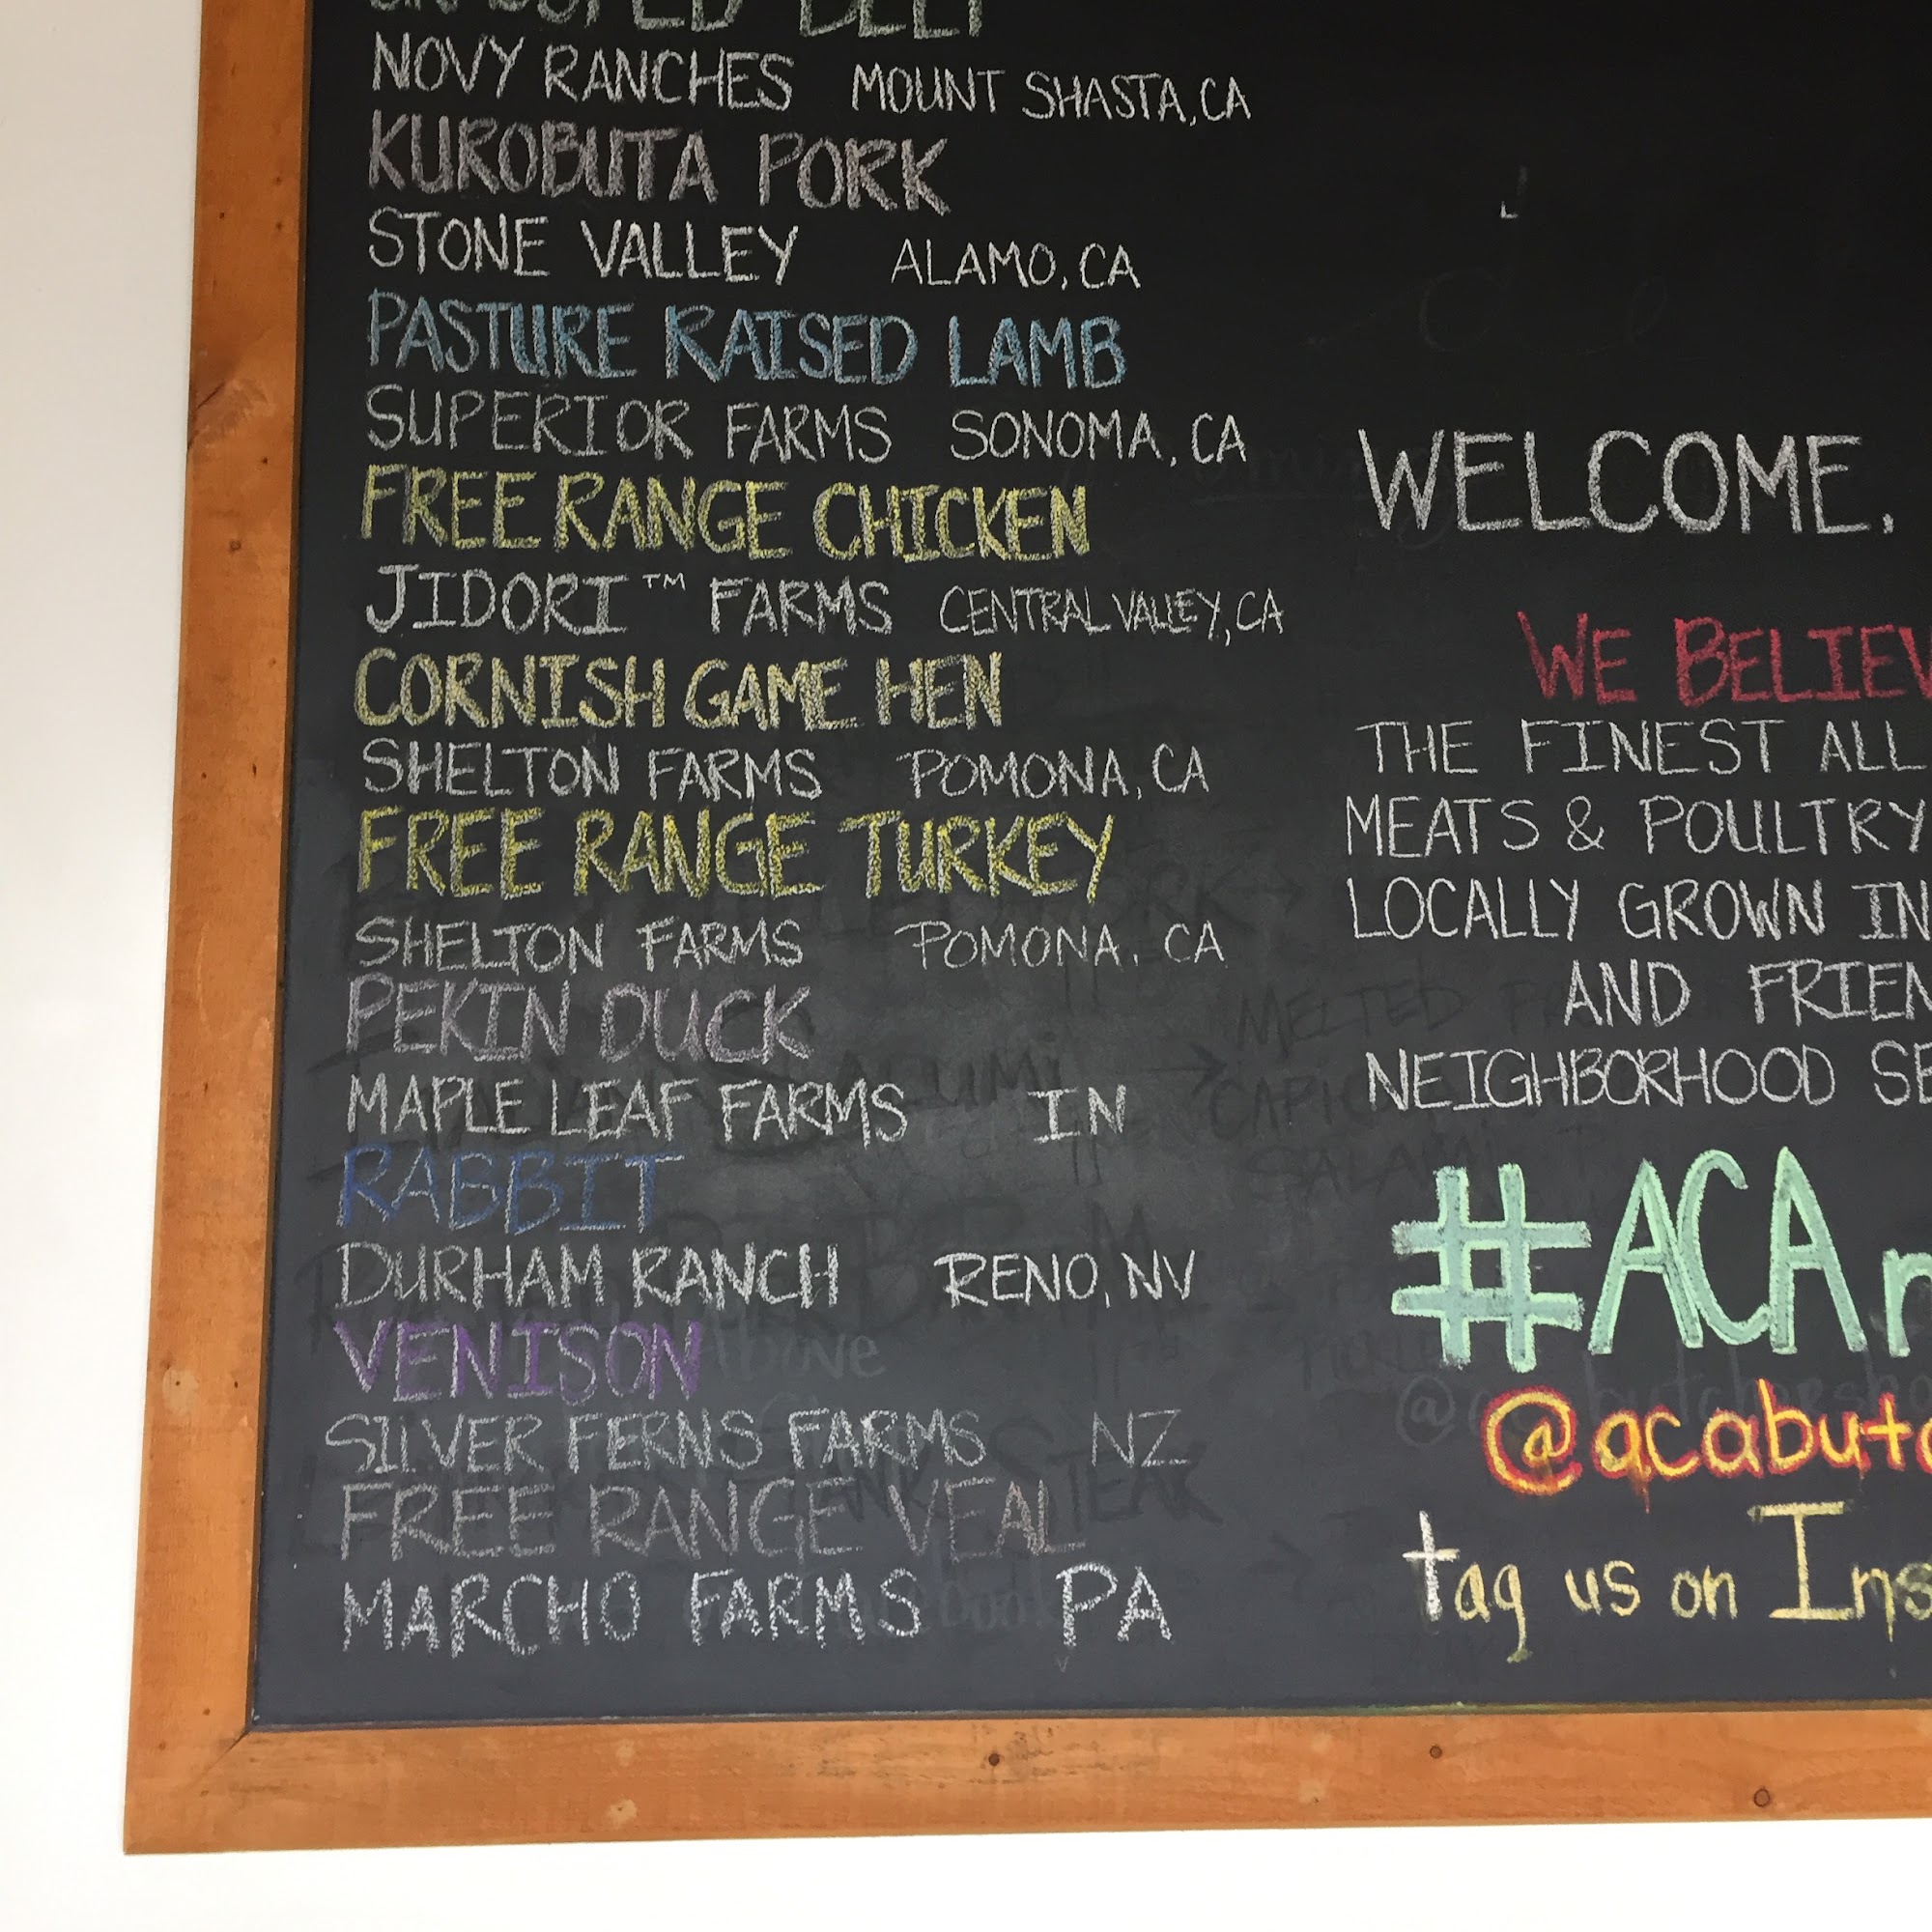 NOVY RANCHES MOUNT SHASTA, CA
KUROBUTA PORK
STONE VALLEY ALAMO, CA
PASTURE RAISED LAMB
SUPERIOR FARMS SONOMA, CA
FREE RANGE CHICKEN
JIDORI™ FARMS CENTRAL VALLEY, CA
CORNISH GAME HEN
SHELTON FARMS POMONA, CA
FREE RANGE TURKEY
SHELTON FARMS POMONA, CA
PEKIN DUCK
MAPLE LEAF FARMS IN
RABBIT
DURHAM RANCH RENO, NV
VENISON
SILVER FERNS FARMS NZ
FREE RANGE VEAL
MARCHO FARMS PA
WELCOME.
WE BELIEV
THE FINEST ALL
MEATS & POULTRY
LOCALLY GROWN IN
AND FRIEN
NEIGHBORHOOD SE
#ACA
@acabutc
tag us on Ins